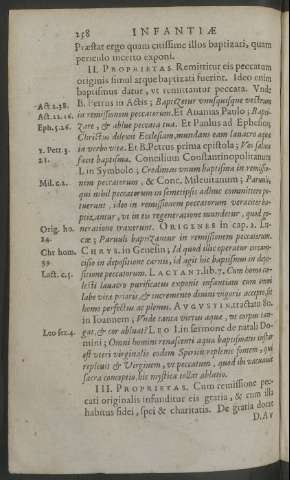 258 INFANTIÆ
Præstat ergo quam citissime illos baptizari, quam
periculo incerto exponi.
II. PROPRIETAS. Remittitur eis peccatum
originis simul atque baptizati fuerint. Ideo enim
baptismus datur, vt remittantur peccata. Vnde
Act 2.38. B. Petrus in Actis; Baptizetur vnusquisque vestrum
Act. 22.16. in remissionem peccatorum. Et Ananias Paulo; Bapti-
Eph. 5.26. zare, & ablue peccata tua. Et Paulus ad Ephesios;
Christus dilexit Ecclesiam, mundans eam lauacro aquæ
1. Petr. 3. in verbo vitæ. Et B. Petrus prima epistola; Vos saluos
21. facit baptisma. Concilium Constantinopolitanum
I. in Symbolo; Credimus vnum baptisma in remissio-
Mil. c.2. nem peccatorum. & Conc. Mileuitanum; Paruuli,
qui nihil peccatorum in semetipsis adhuc committere po-
tuerunt, ideo in remissionem peccatorum veraciter ba-
ptizantur, vt in eis regeneratione mundetur, quod ge-
Orig. ho. neratione traxerunt. ORIGENES in cap. 2. Lu-
14. cæ; Paruuli baptizantur in remissionem peccatorum.
Chr hom. CHRYS. in Genesin; Id quod illic operatur circum-
39. cisio in depositione carnis, id agit hic baptismus in depo-
Lact. c.5. sitione peccatorum. LACTANT. lib. 7. Cum homo cæ-
lesti lauacro purificatus exponit infantiam cum omni
labe vitæ prioris, & incremento diuini vigoris accepto, fit
homo perfectus ac plenus. AVGVSTIN. tractatu 80.
in Ioannem; Vnde tanta virtus aquæ, vt corpus tan-
Leo ser.4. gat, & cor abluat? LEO I. in sermone de natali Do-
mini; Omni homini renascenti aqua baptismatis instar
est vteri virginalis eodem Spiritu replente fontem, qui
repleuit & Virginem, vt peccatum, quod ibi vacuauit
sacra conceptio, hic mystica tollat ablutio.
III. PROPRIETAS. Cum remissione pec-
cati originalis infunditur eis gratia, & cum illa
habitus fidei, spei & charitatis. De gratia docet